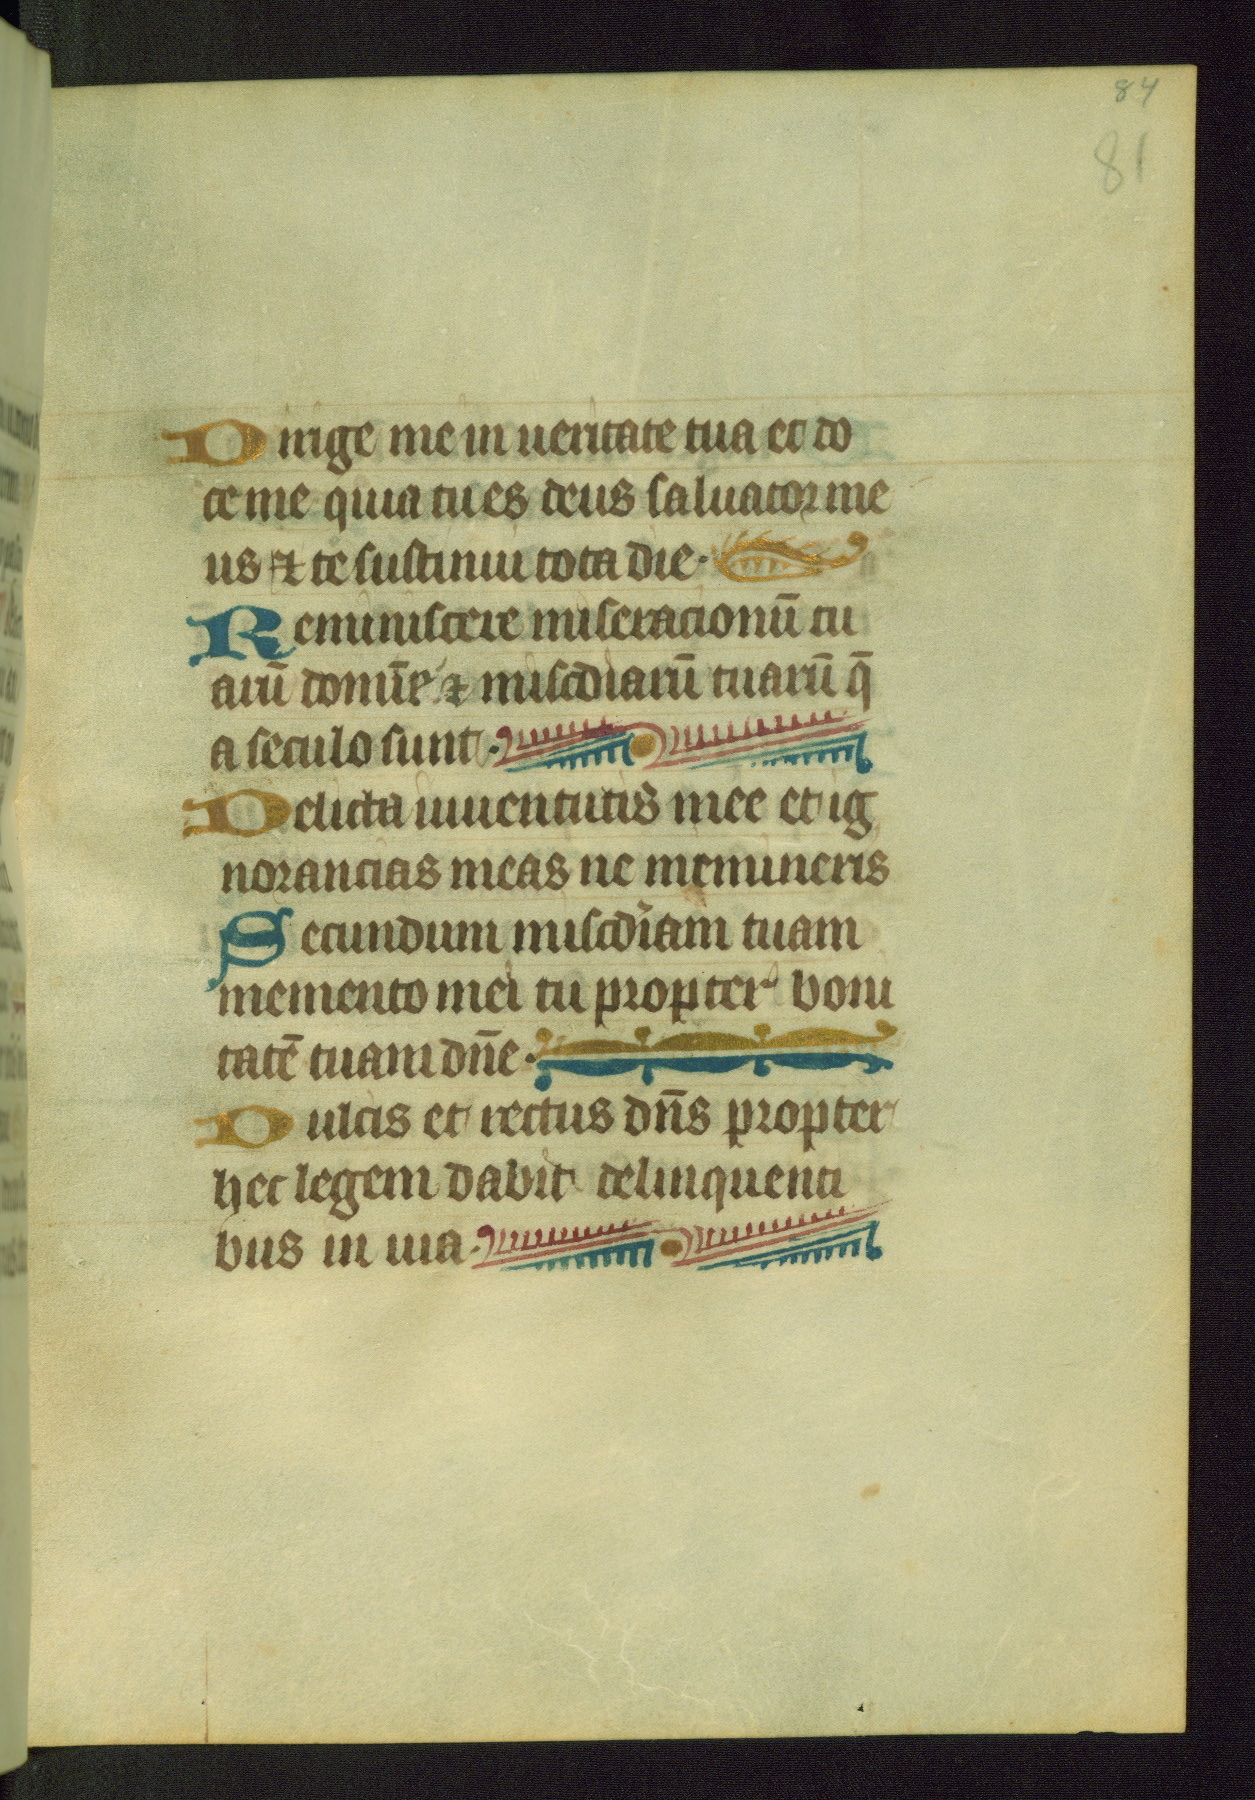 84
81
Dirige me in ueritate tua et do
ce me quia tu es deus saluator me
us ⁊ te sustinui tota die·
Reminiscere miseracionū tu
arū domīe ⁊ miscdiarū tuarū q̄
a seculo sunt·
Delicta iuuentutis mee et ig
norancias meas ne memineris
Secundum miscdīam tuam
memento mei tu propter boni
tatē tuam dn̄e·
Dulcis et rectus dn̄s propter
hec legem dabit delinquenti
bus in uia·